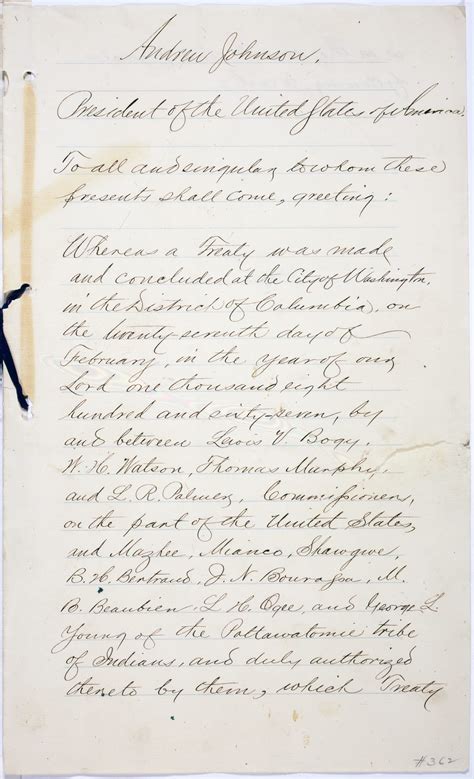 Andrew Johnson,
President of the United States of America,
To all and singular to whom these
presents shall come, greeting:
Whereas a Treaty was made
and concluded at the City of Washington,
in the District of Columbia, on
the twenty-seventh day of
February, in the year of our
Lord one thousand eight
hundred and sixty-seven, by
and between Lewis V. Bogy,
W. H. Watson, Thomas Murphy,
and L. R. Palmer, Commissioners,
on the part of the United States,
and Mazhee, Mianco, Shawgwe,
B. H. Bertrand, J. N. Bourassa, M.
B. Beaubien, L. H. Ogee, and George L.
Young of the Pottawatomie tribe
of Indians, and duly authorized
thereto by them, which Treaty
#362